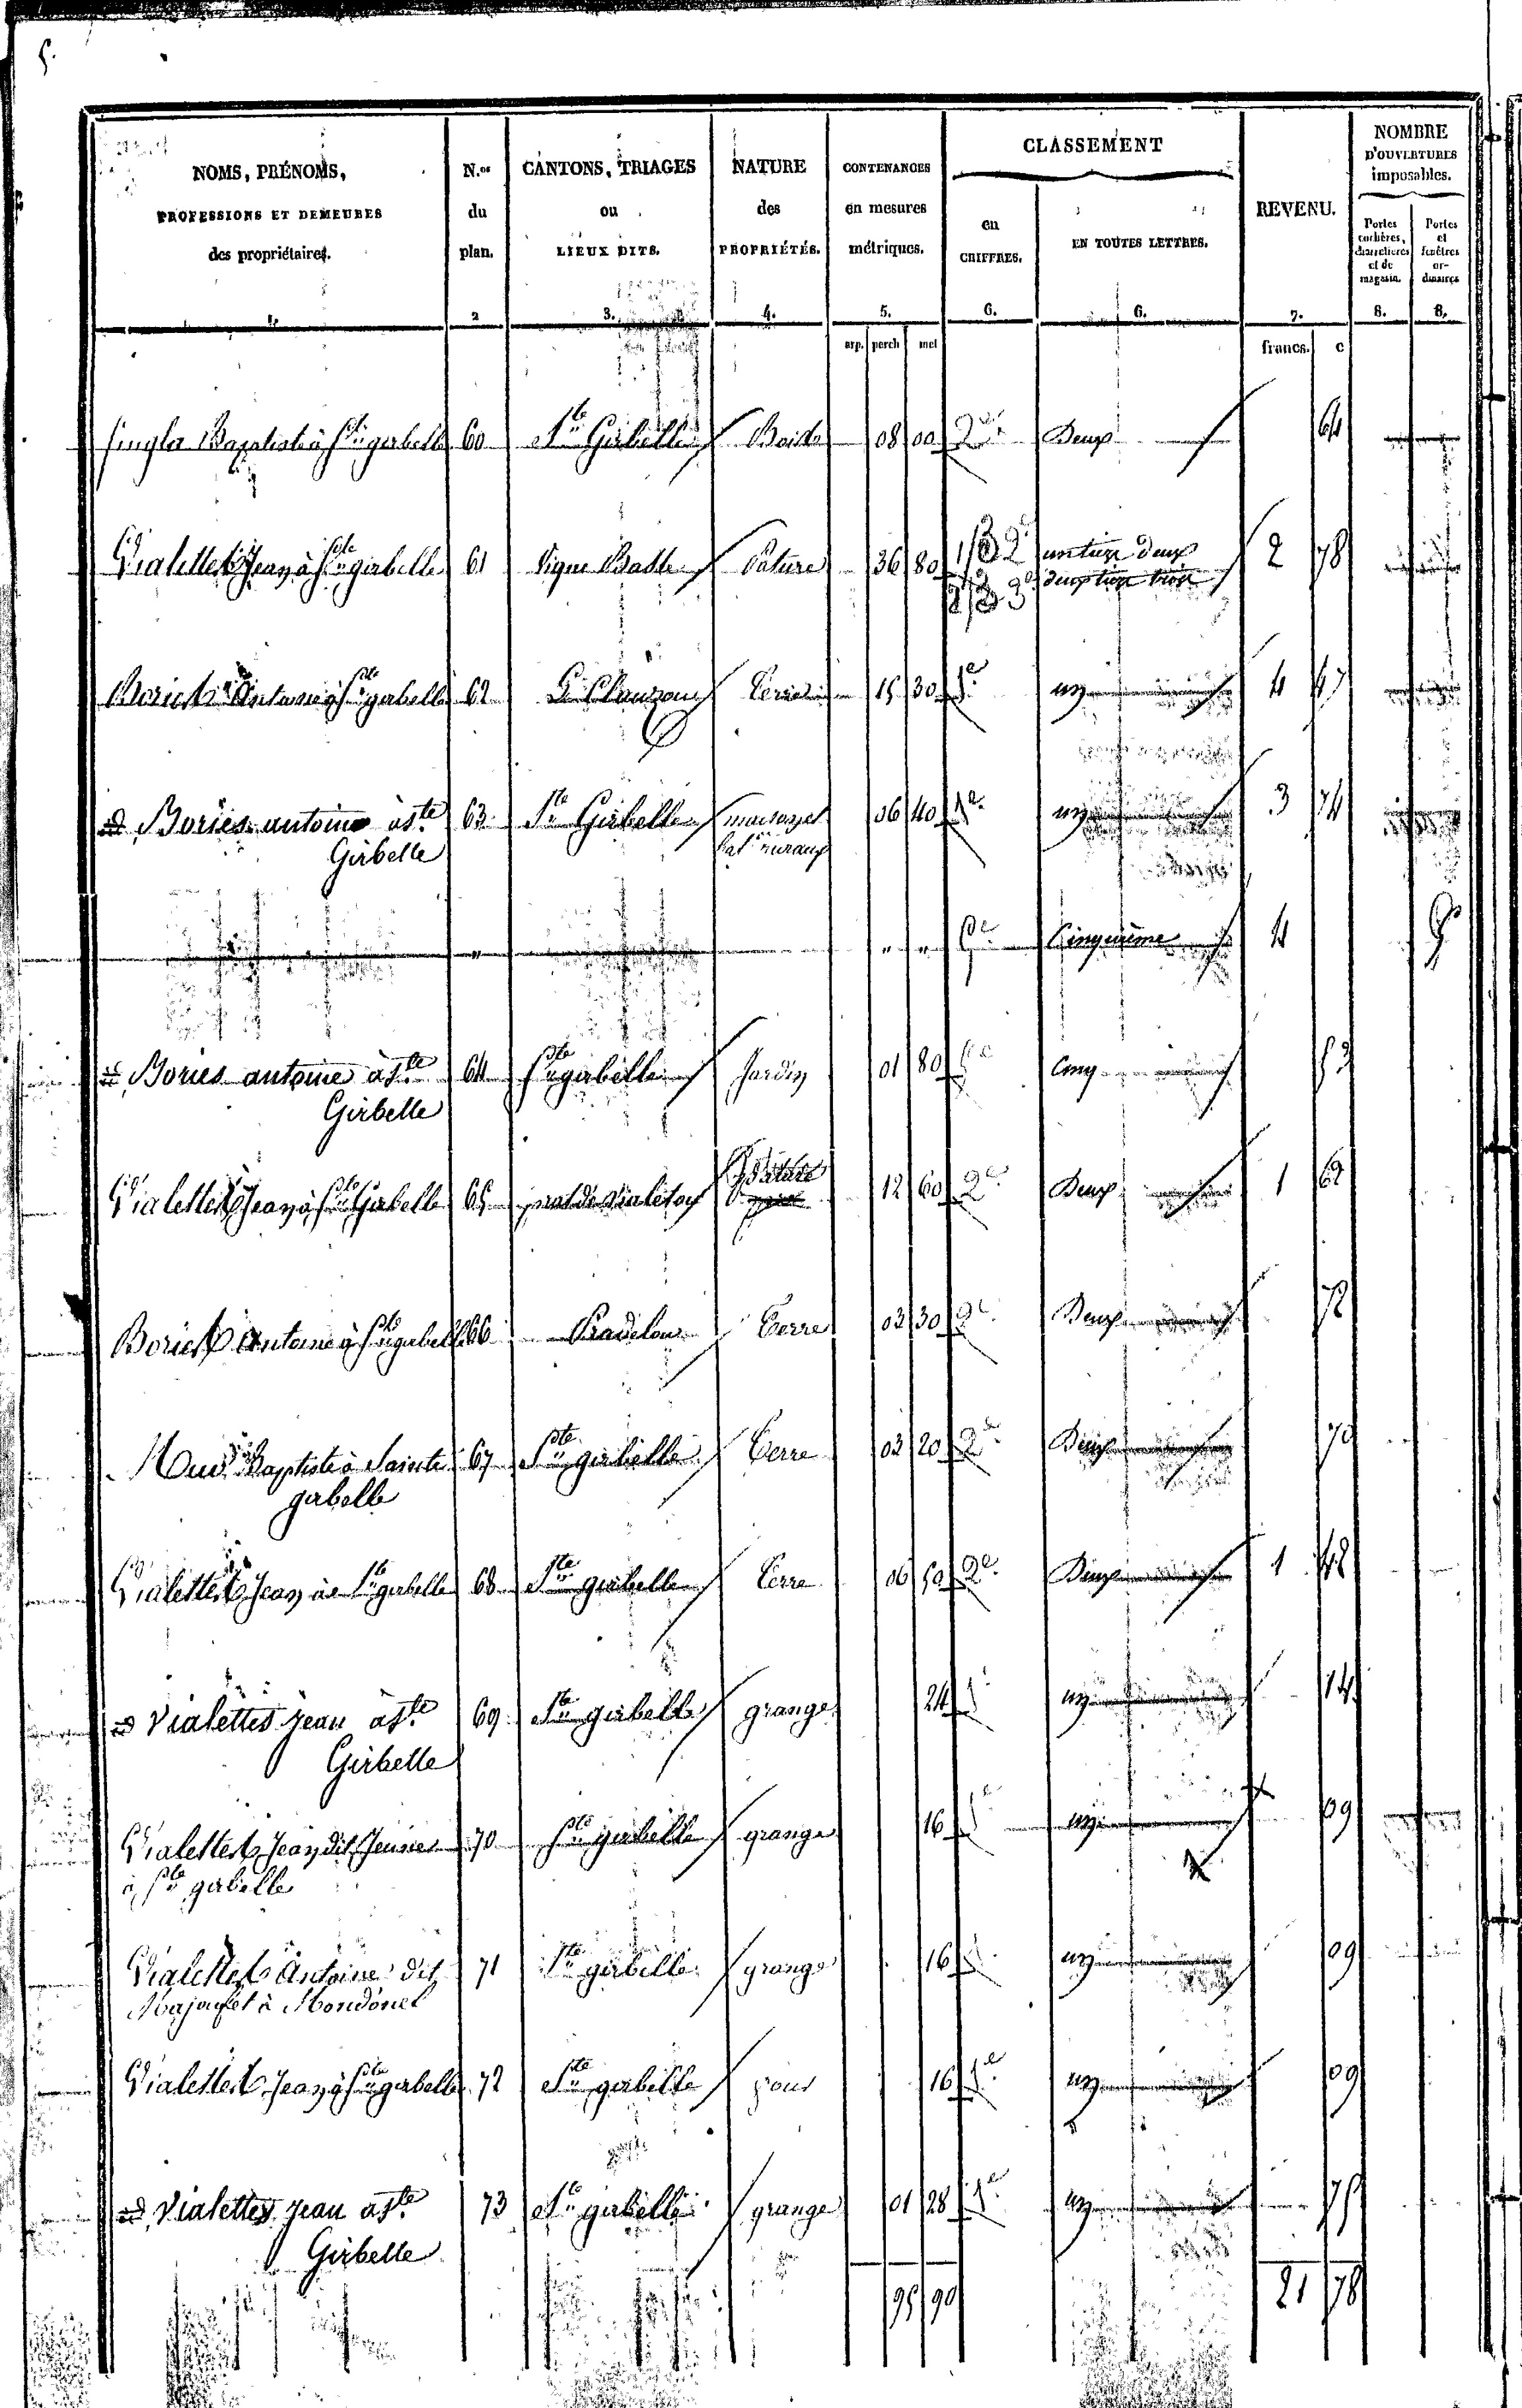 5.
NOMS, PRÉNOMS, PROFESSIONS ET DEMEURES des propriétaires. N.os du plan. CANTONS, TRIAGES ou LIEUX DITS. NATURE des PROPRIÉTÉS. CONTENANCES en mesures métriques. CLASSEMENT en CHIFFRES. EN TOUTES LETTRES. REVENU. NOMBRE D'OUVERTURES imposables. Portes cochères, charretières et de magasin. Portes et fenêtres ordinaires
1. 2 3. 4. 5. 6. 6. 7. 8. 8.
arp. perch met francs. c
Baptiste à Ste girbelle 60 Ste Girbelle 08 00 2e Deux 64
Vialettes Jean à Ste girbelle 61 Vigne Basse Pature 36 80 1/3 2e un tiers deux 2 78
2/3 3e deux tiers trois
Bories Antoine à Ste girbelle 62 Terre 15 30 1e un 4
Bories antoine à Ste 63 Ste Girbelle maison et 06 40 1e un 3 74
Girbelle bat. ruraux
" " " 5e Cinquième 4
Bories antoine à Ste 64 Ste girbelle Jardin 01 80 5e Cinq
Girbelle
Vialettes Jean à Ste Girbelle 65 Pature 12 60 2e Deux 1 62
Bories Antoine à Ste girbelle 66 Pradelou Terre 03 30 2e Deux 72
Baptiste à Sainte 67 Ste girbelle Terre 03 20 2e Deux 70
girbelle
Vialettes Jean à Ste girbelle 68 Ste girbelle Terre 06 50 2e Deux 1 42
Vialettes Jean à Ste 69 Ste girbelle grange 24 1e un 14
Girbelle
Vialettes Jean dit Jeune 70 Ste girbelle grange 16 1e un 09
à Ste girbelle
Vialettes Antoine dit 71 Ste girbelle grange 16 1e un 09
à Mondonet
Vialettes Jean à Ste girbelle 72 Ste girbelle 16 1e un 09
Vialettes Jean à Ste 73 Ste girbelle grange 01 28 1e un 75
Girbelle
95 90 21 78